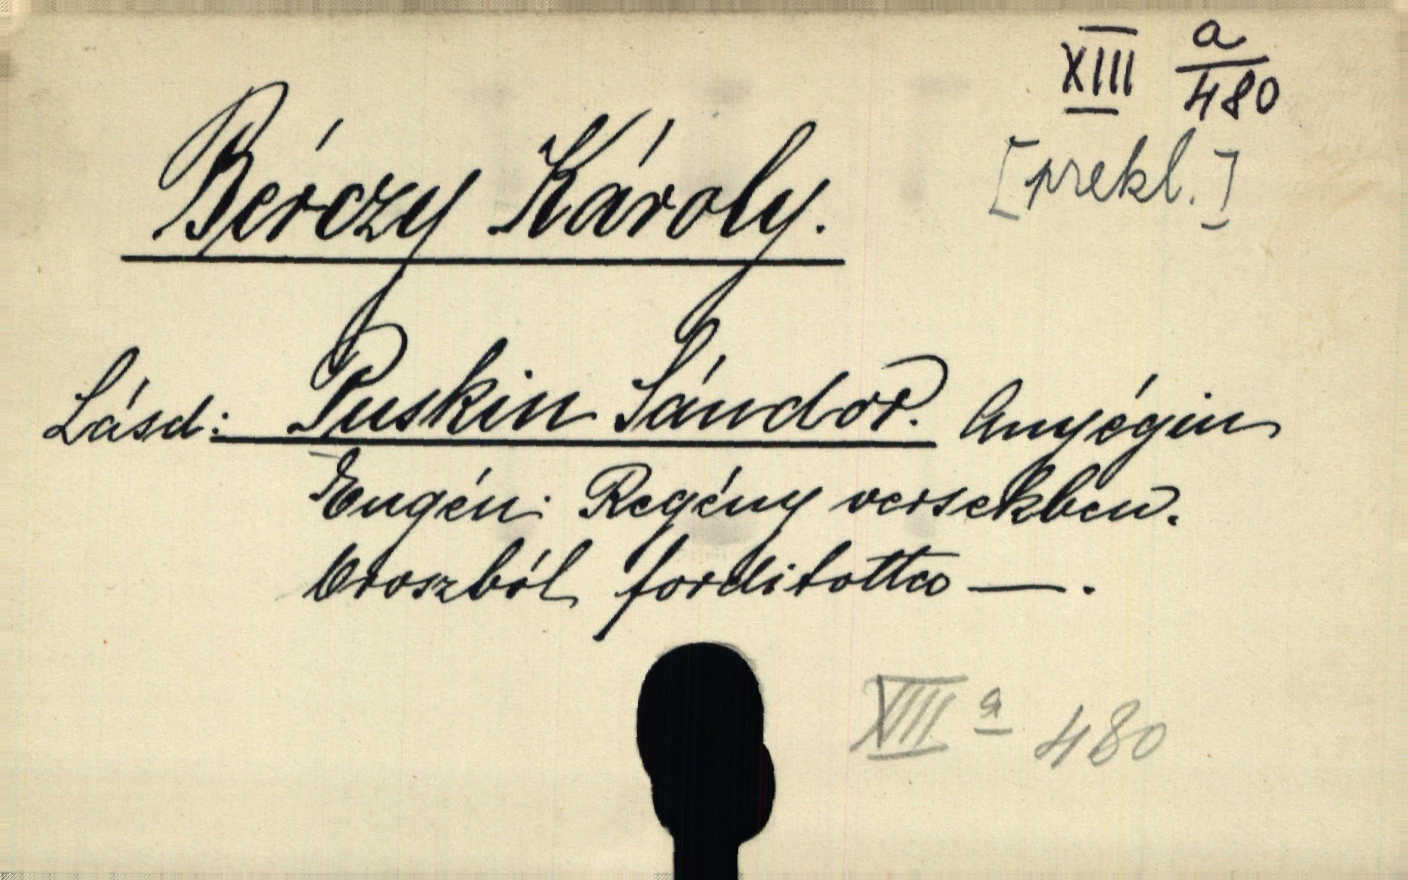 XIII a/480
[prekl.]
Bérczy Károly.
Lásd: Puskin Sándor. Anyégin
Eugén: Regény versekben.
Oroszból forditotta —.
XIII a 480